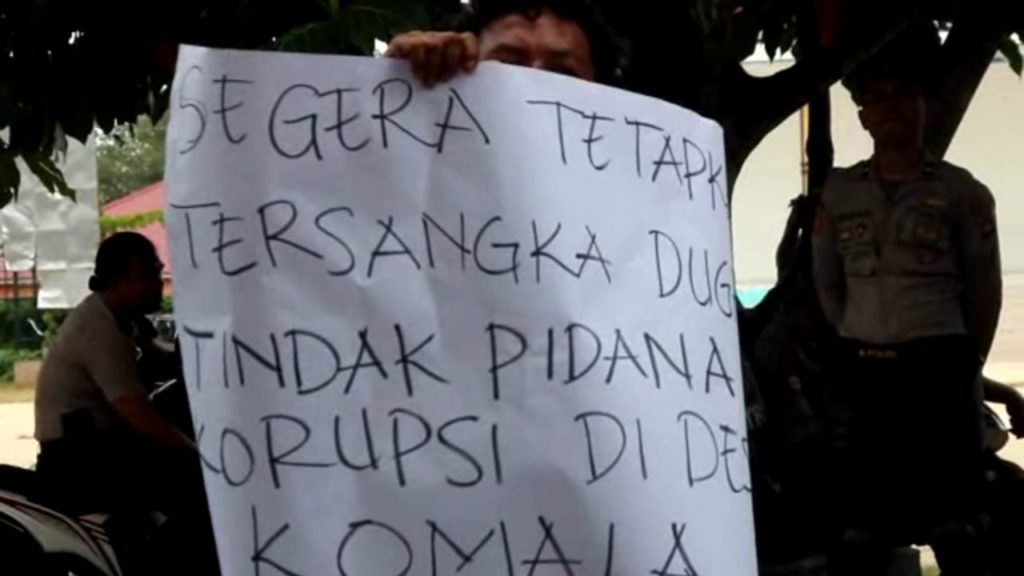 SEGERA TETAPK
TERSANGKA DUG
TINDAK PIDANA
KORUPSI DI DES
KOMALA